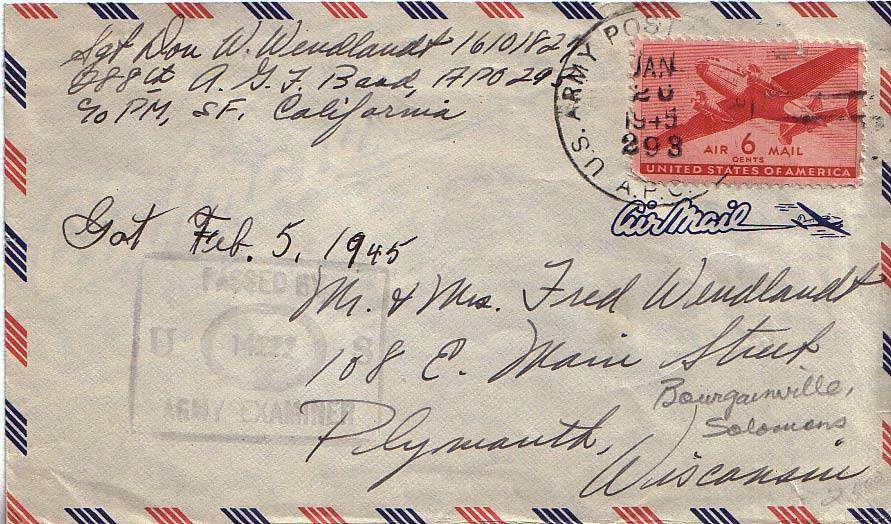 Sgt Don W. Wendlandt 1610182
A.G.F. Band, APO 29
℅ PM, SF, California
U.S. ARMY POST
A.P.O.
JAN
1945
293
AIR 6 MAIL
CENTS
UNITED STATES OF AMERICA
Air Mail
Got Feb. 5, 1945
PASSED BY
U S
ARMY EXAMINER
Mr. & Mrs. Fred Wendlandt
108 E. Main Street
Plymouth,
Wisconsin
Bourgainville,
Solomons